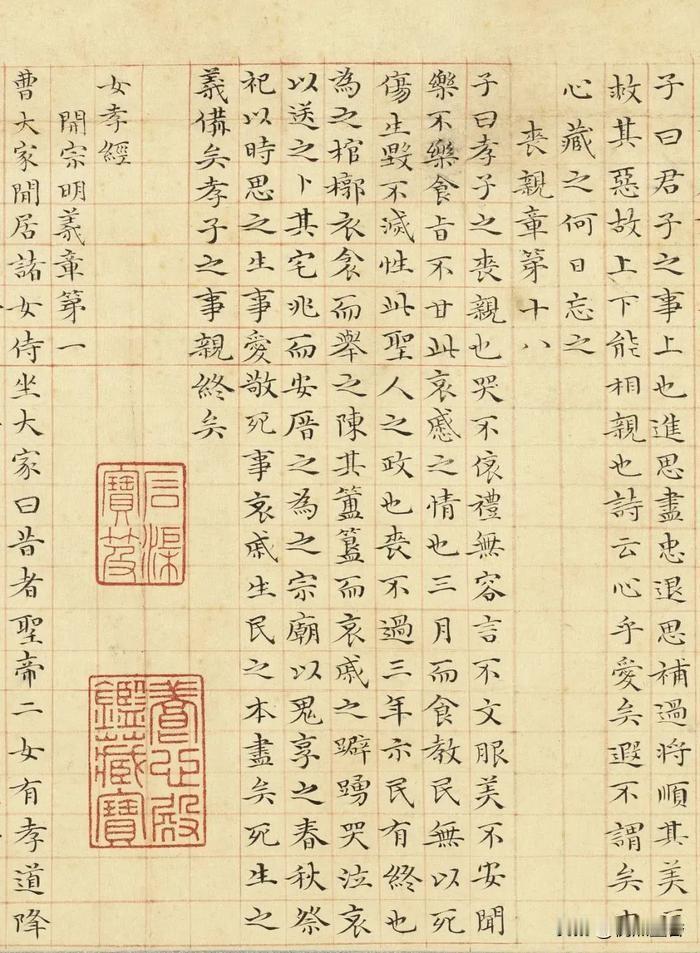 子曰君子之事上也進思盡忠退思補過將順其美匡
救其惡故上下能相親也詩云心乎愛矣遐不謂矣中
心藏之何日忘之
喪親章第十八
子曰孝子之喪親也哭不偯禮無容言不文服美不安聞
樂不樂食旨不甘此哀慼之情也三月而食教民無以死
傷生毀不滅性此聖人之政也喪不過三年示民有終也
為之棺槨衣衾而舉之陳其簠簋而哀戚之躃踴哭泣哀
以送之卜其宅兆而安厝之為之宗廟以鬼享之春秋祭
祀以時思之生事愛敬死事哀戚生民之本盡矣死生之
義備矣孝子之事親終矣
女孝經
開宗明義章第一
石渠寶笈
養心殿鑑藏寶
曹大家閒居諸女侍坐大家曰昔者聖帝二女有孝道降